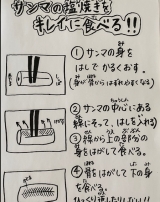 サンマの塩焼きを
キレイに食べる!!
① サンマの身を
はしでかるくおす。
(身が骨からはずれやすくなる)
② サンマの中心にある
線にそって、はしを入れる
③ 線から上の部分の
身をはがして食べる。
④ 骨をはがして下の身
を食べる。